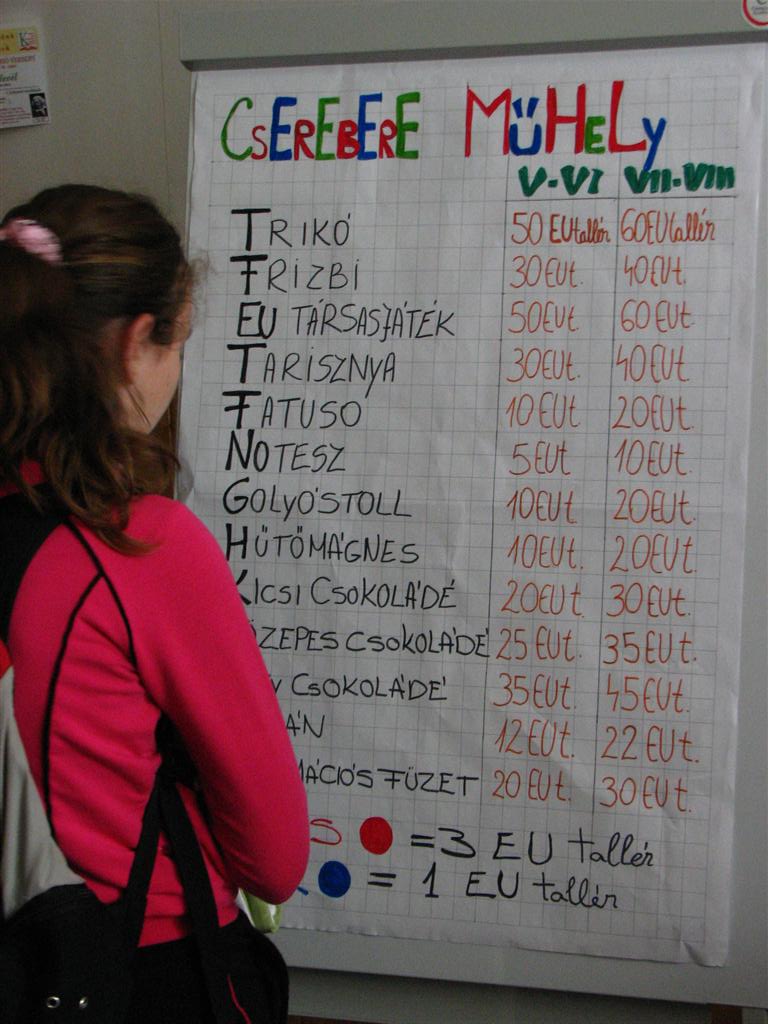 CSEREBERE MŰHELY
V-VI VII-VIII
TRIKÓ 50 EUtallér 60EUtallér
FRIZBI 30EUt. 40EUt.
EU TÁRSASJÁTÉK 50EUt 60EUt
TARISZNYA 30EUt. 40EUt.
FATUSO 10EUt 20EUt.
NOTESZ 5EUt 10EUt.
GOLYÓSTOLL 10EUt. 20EUt.
HŰTŐMÁGNES 10EUt. 20EUt.
KICSI CSOKOLÁDÉ 20EUt 30EUt.
ZEPES CSOKOLÁDÉ 25 EUt. 35EUt.
Y CSOKOLÁDÉ 35EUt. 45EUt.
ÁN 12EUt. 22EUt.
MÁCIÓS FÜZET 20EUt. 30EUt.
S = 3 EU tallér
= 1 EU tallér